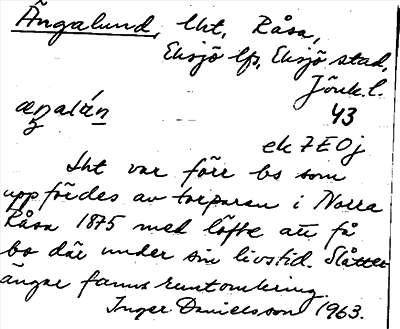 Ängalund, lht, Råsa,
Eksjö lfs, Eksjö stad,
Jönk. l.
43
ek 7E0j
Lht var förr bs som
uppfördes av torparen i Norra
Råsa 1875 med löfte att få
bo där under sin livstid. Slåtter-
ängar fanns runtomkring.
Inger Danielsson 1963.